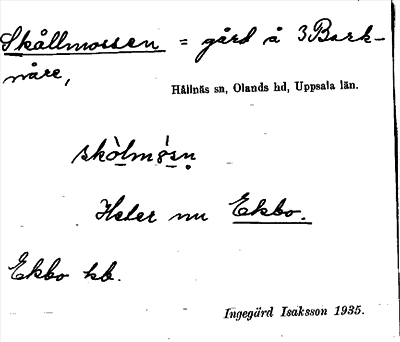 Skållmossen = gård å 3 Bark-
nåre,
Hållnäs sn, Olands hd, Uppsala län.
skòlmósn
Heter nu Ekbo.
Ekbo kb.
Ingegärd Isaksson 1935.